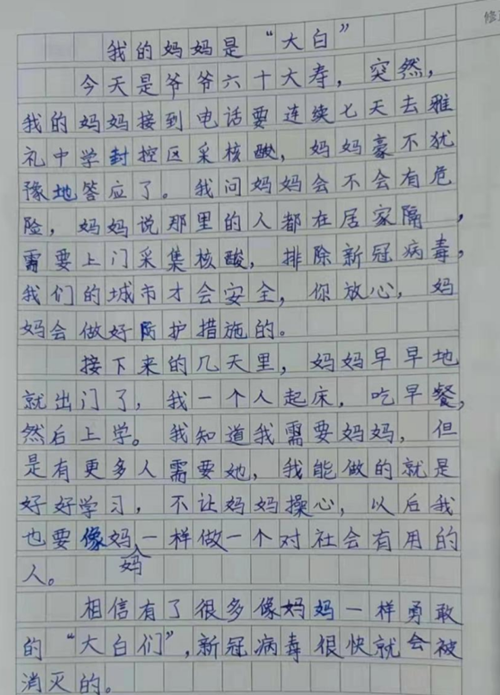 我的妈妈是“大白”
今天是爷爷六十大寿，突然，
我的妈妈接到电话要连续七天去雅
礼中学封控区采核酸，妈妈豪不犹
豫地答应了。我问妈妈会不会有危
险，妈妈说那里的人都在居家隔，
需要上门采集核酸，排除新冠病毒，
我们的城市才会安全，你放心，妈
妈会做好防护措施的。
接下来的几天里，妈妈早早地
就出门了，我一个人起床，吃早餐，
然后上学。我知道我需要妈妈，但
是有更多人需要她，我能做的就是
好好学习，不让妈妈操心，以后我
也要像妈妈一样做一个对社会有用的
人。
相信有了很多像妈妈一样勇敢
的“大白们”，新冠病毒很快就会被
消灭的。